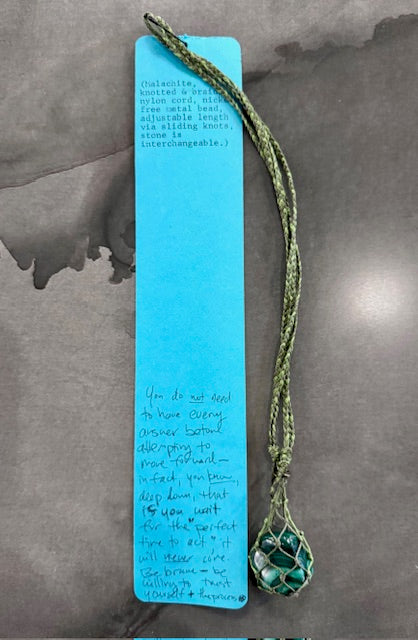 (malachite,
knotted & braid
nylon cord, nick
free metal bead,
adjustable length
via sliding knots,
stone is
interchangeable.)
You do not need
to have every
answer before
attempting to
move forward—
in fact, you know,
deep down, that
if you wait
for the "perfect
time to act", it
will never come.
Be brave – be
willing to trust
yourself + the process